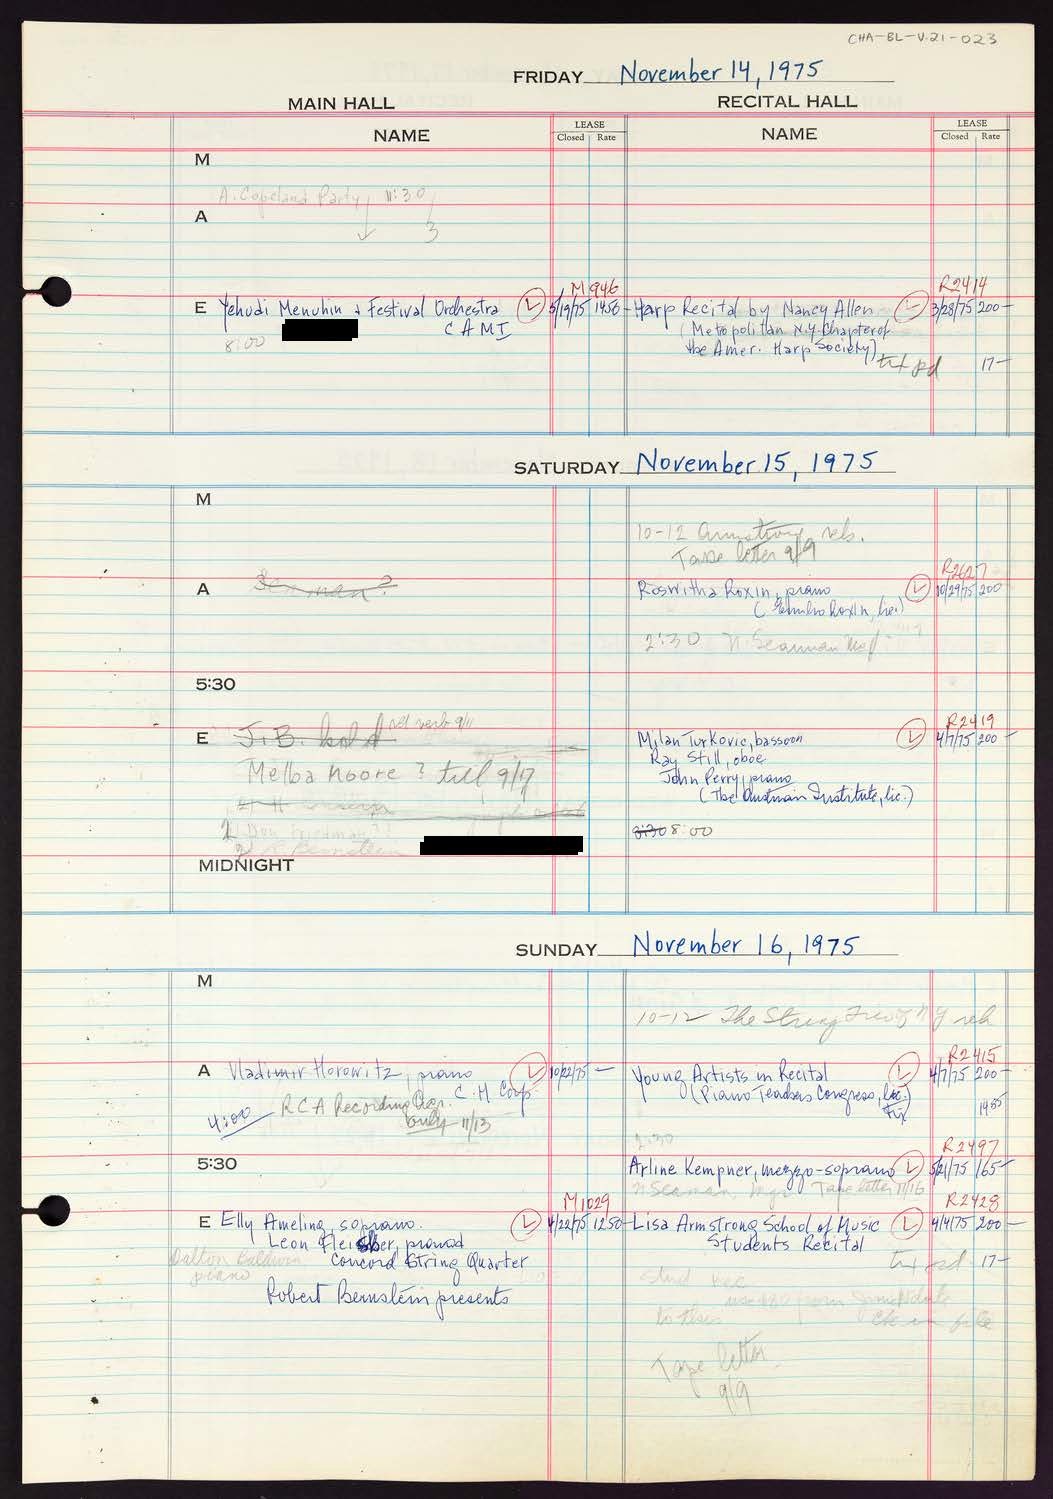 CHA-BL-V.21-023
FRIDAY November 14, 1975
MAIN HALL RECITAL HALL
NAME LEASE Closed Rate NAME LEASE Closed Rate
M
A. Copeland Party 11:30
A 3
M946 R2414
E Yehudi Menuhin & Festival Orchestra L 5/19/75 1450- Harp Recital by Nancy Allen L 3/28/75 200-
CAMI (Metropolitan N.Y. Chapter of
8:00 the Amer. Harp Society)
txt pd 17-
SATURDAY November 15, 1975
M
10-12 Armstrong reh.
Tape letter 9/9
R2627
A Seaman? Roswitha Roxin, piano L 10/29/75 200
Roxin, lic.)
2:30 N. Seaman
5:30
rel verb 9/11 R2419
E J.B. hold Milan Turkovic, bassoon L 4/7/75 200-
Ray Still, oboe
Melba Moore? till 9/17 John Perry, piano
(The Austrian Institute, lic.)
1) Don Friedman?? 8:30 8:00
2) Bernstein
MIDNIGHT
SUNDAY November 16, 1975
M
10-12 The String Trio of NY reh
R2415
A Vladimir Horowitz, piano L 10/22/75 - Young Artists in Recital L 4/7/75 200-
C.H. Corp. (Piano Teachers Congress, lic.)
4:00 RCA Recording Fix
only 11/13
2:30 R2497
5:30 Arline Kempner, mezzo-soprano L 5/21/75 165-
N Seaman, Mgr. Tape letter 11/16
M1029 R2428
E Elly Ameling, soprano. L 4/22/75 1250- Lisa Armstrong School of Music L 4/4/75 200-
Leon Fleisher, pianod Students Recital
Dalton Baldwin Concord String Quartet txt pd 17-
piano
Robert Bernstein presents
stud rec
to this ck in file
Tape letter
9/9